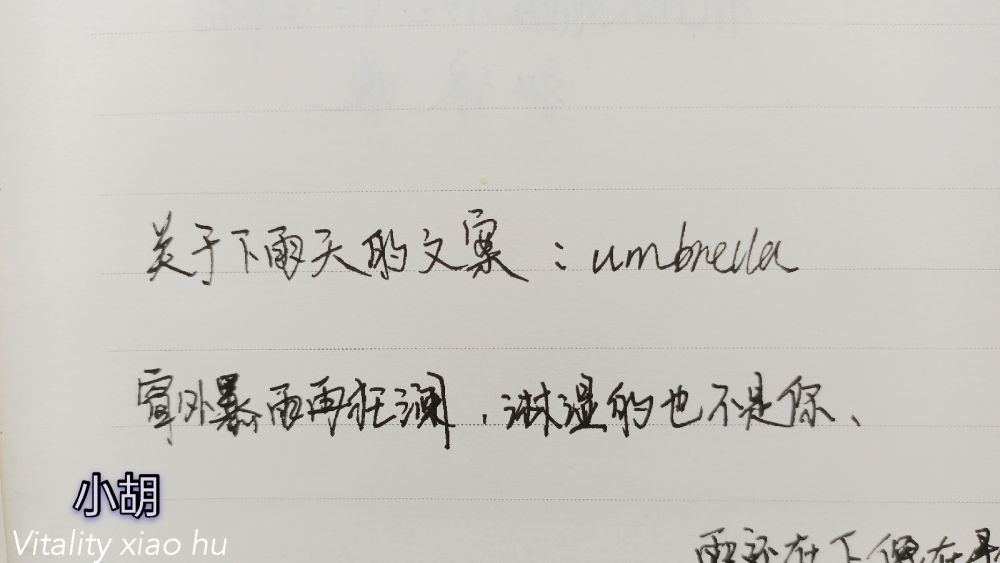 关于下雨天的文案：umbrella
窗外暴雨再狂澜，淋湿的也不是你、
雨还在下
小胡
Vitality xiao hu